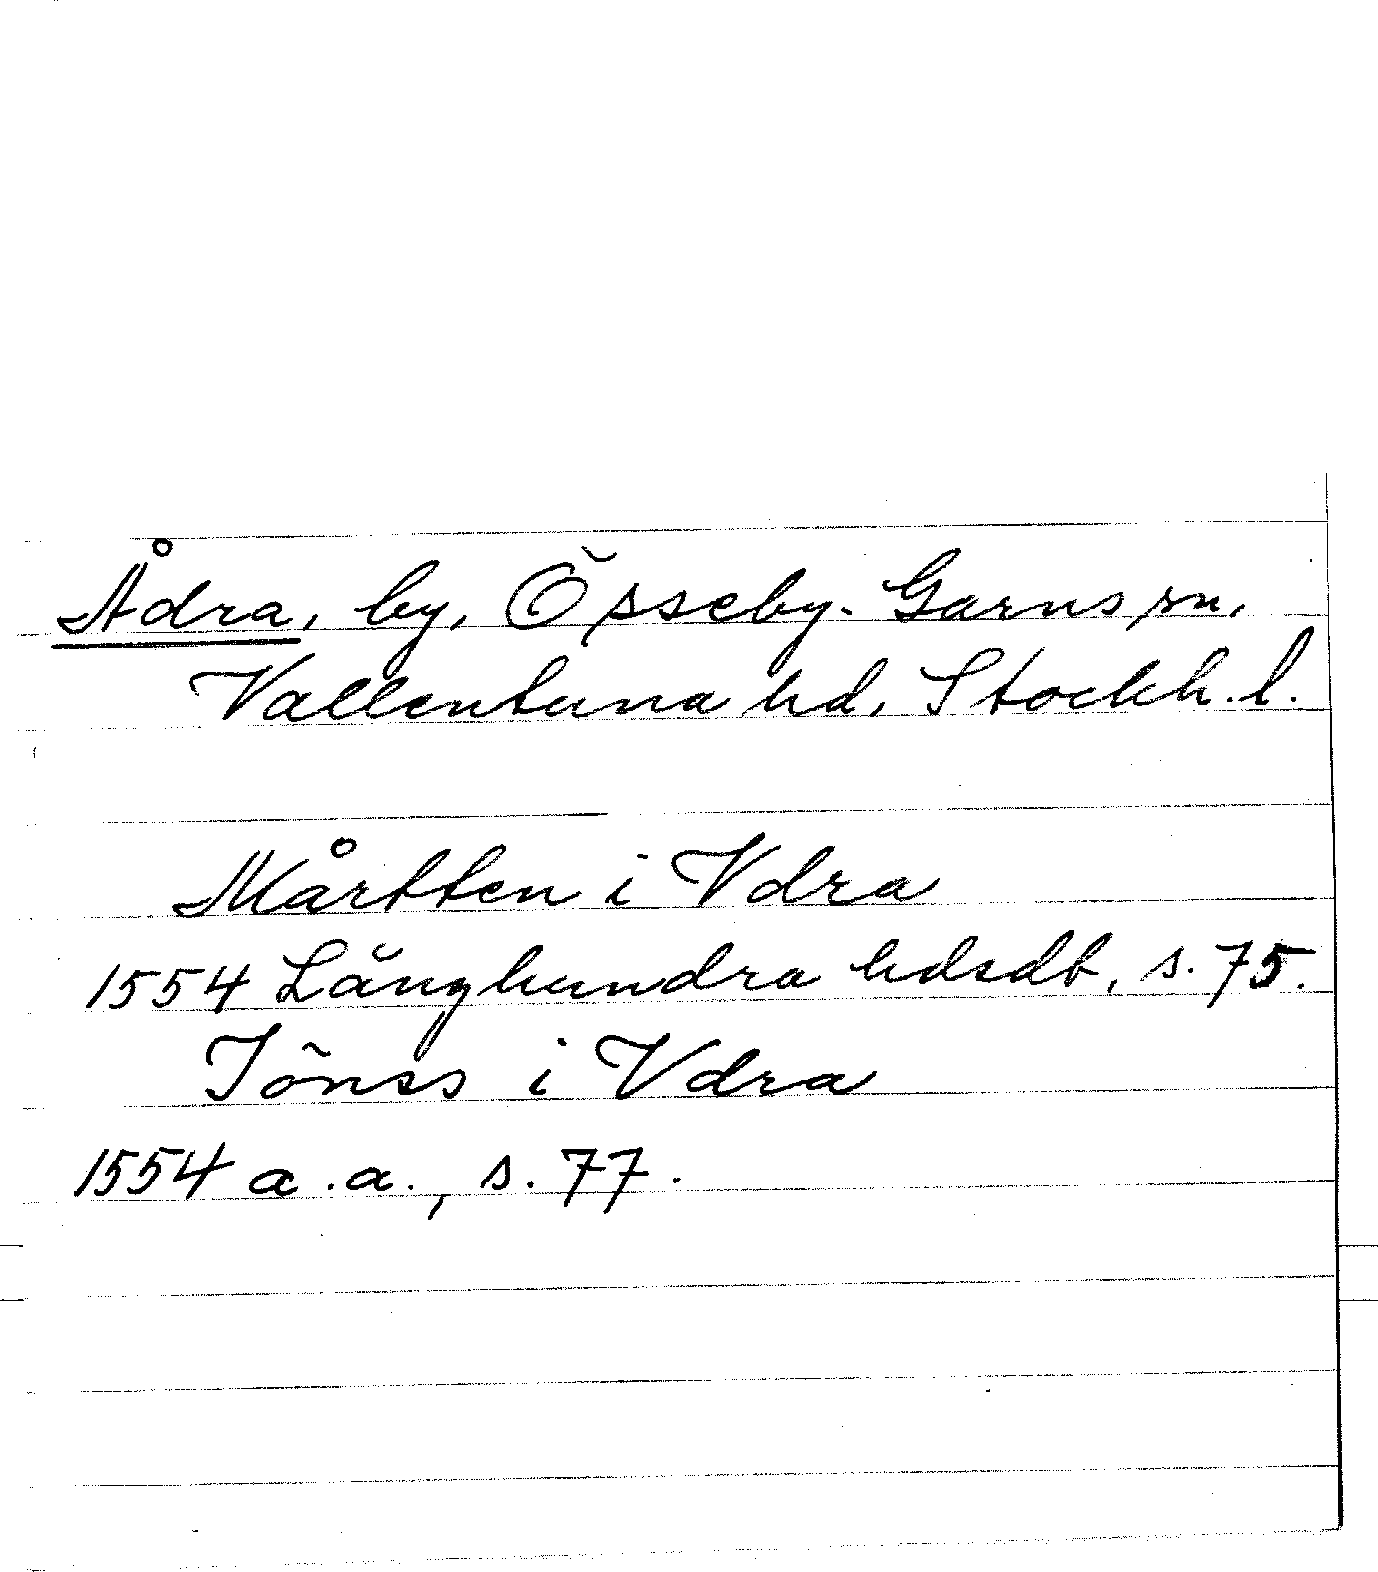 Ådra, by, Össeby-Garns sn,
Vallentuna hd, Stockh. l.
Mårtten i Vdra
1554 Långhundra hdsdb, s. 75.
Jönss i Vdra
1554 a.a., s. 77.